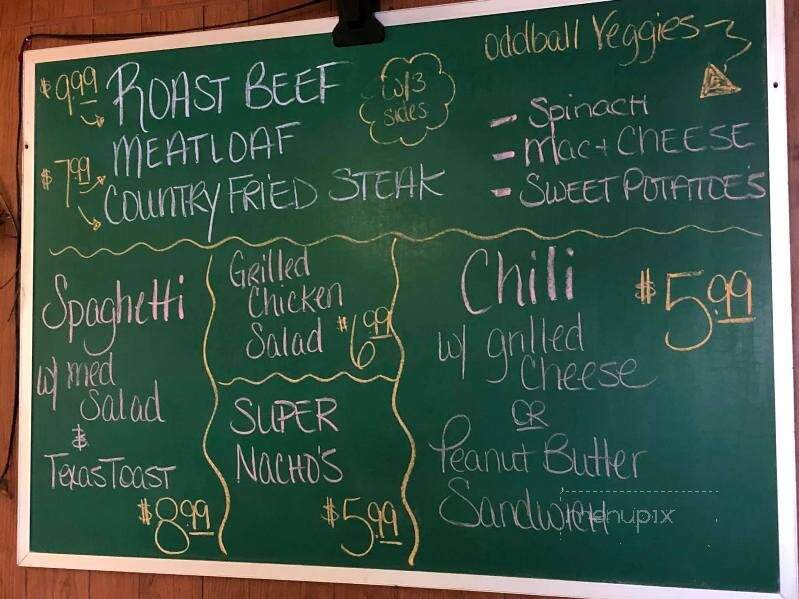 $9.99 ROAST BEEF
w/3
sides
MEATLOAF
$7.99
COUNTRY FRIED STEAK
oddball Veggies
- Spinach
- Mac + CHEESE
- SWEET POTATOE'S
Spaghetti
w/ med
Salad
&
Texas Toast
$8.99
Grilled
Chicken
Salad $6.99
SUPER
NACHO'S
$5.99
Chili $5.99
w/ grilled
Cheese
OR
Peanut Butter
Sandwich
menupix